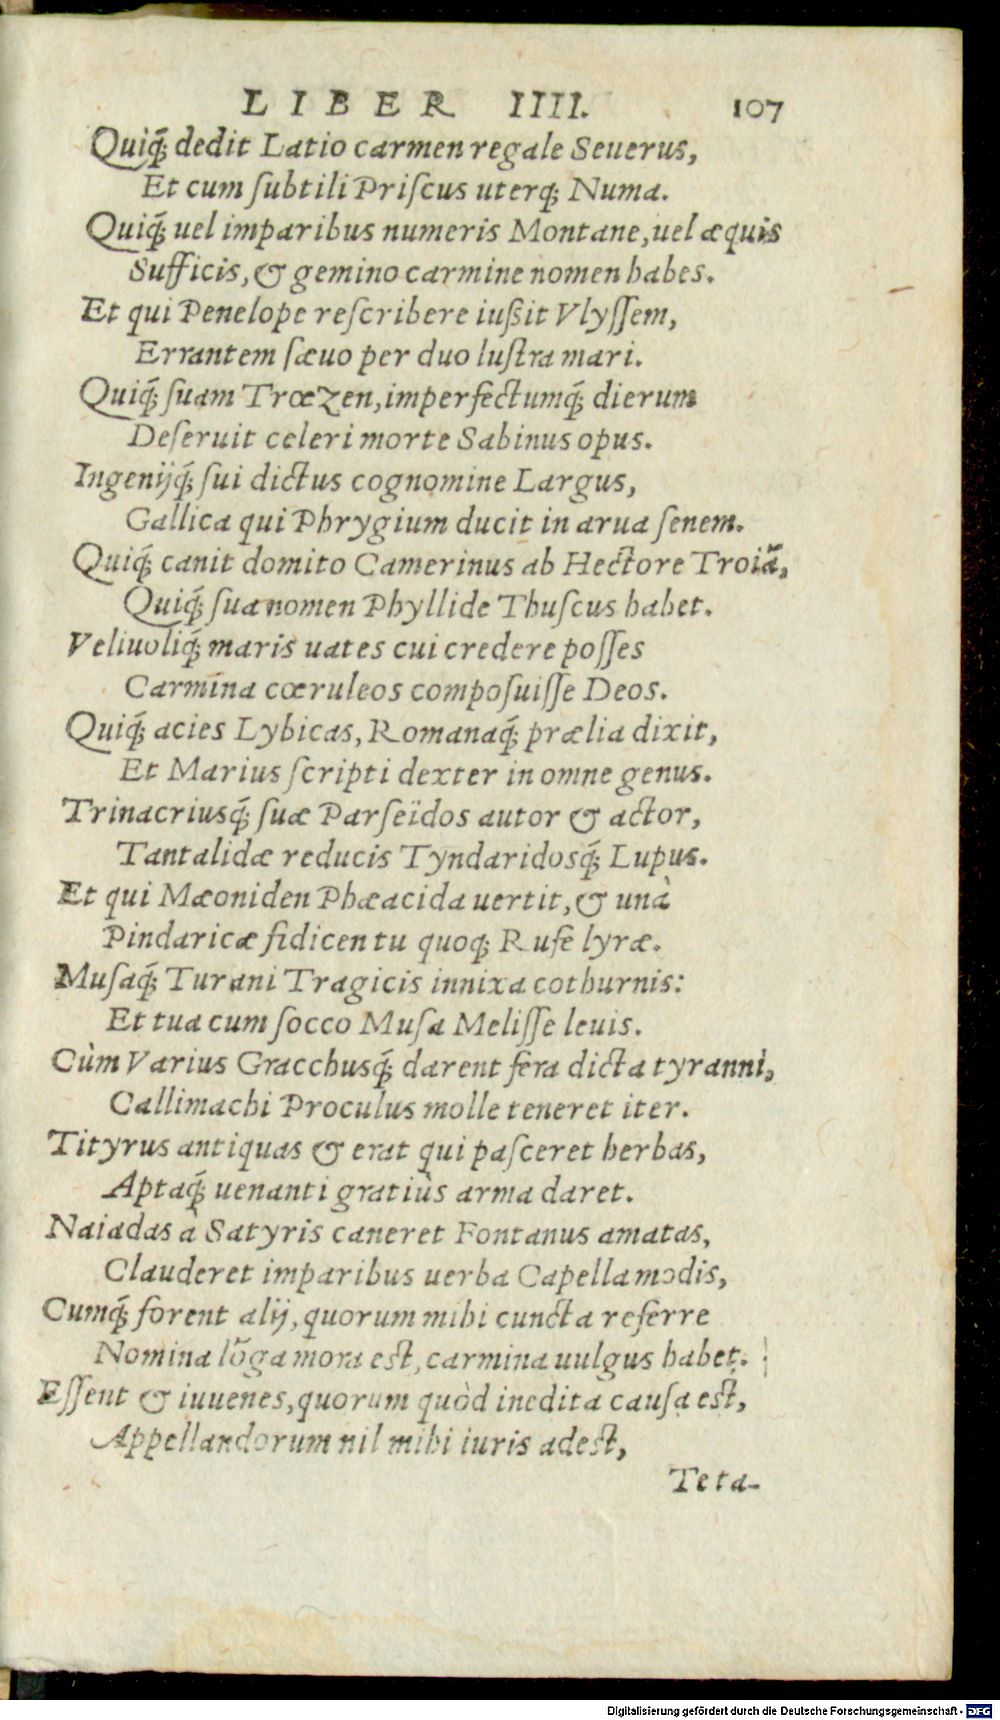 LIBER IIII. 107
Quiq́; dedit Latio carmen regale Seuerus,
Et cum ſubtili Priſcus uterq; Numa.
Quiq́; uel imparibus numeris Montane, uel æquis
Sufficis, & gemino carmine nomen habes.
Et qui Penelope reſcribere iußit Vlyſſem,
Errantem ſæuo per duo luſtra mari.
Quiq́; ſuam Trœzen, imperfectumq́; dierum
Deſeruit celeri morte Sabinus opus.
Ingenijq́; ſui dictus cognomine Largus,
Gallica qui Phrygium ducit in arua ſenem.
Quiq́; canit domito Camerinus ab Hectore Troiã,
Quiq́; ſua nomen Phyllide Thuſcus habet.
Veliuoliq́; maris uates cui credere poſſes
Carmina cœruleos compoſuiſſe Deos.
Quiq́; acies Lybicas, Romanaq́; prælia dixit,
Et Marius ſcripti dexter in omne genus.
Trinacriusq́; ſuæ Parſeïdos autor & actor,
Tantalidæ reducis Tyndaridosq́; Lupus.
Et qui Mæoniden Phæacida uertit, & unà
Pindaricæ fidicen tu quoq; Rufe lyræ.
Muſaq́; Turani Tragicis innixa cothurnis:
Et tua cum ſocco Muſa Meliſſe leuis.
Cùm Varius Gracchusq́; darent fera dicta tyranni,
Callimachi Proculus molle teneret iter.
Tityrus antiquas & erat qui paſceret herbas,
Aptaq́; uenanti gratiùs arma daret.
Naiadas à Satyris caneret Fontanus amatas,
Clauderet imparibus uerba Capella modis,
Cumq́; forent alij, quorum mihi cuncta referre
Nomina lõga mora eſt, carmina uulgus habet.
Eſſent & iuuenes, quorum quòd inedita cauſa eſt,
Appellandorum nil mihi iuris adeſt,
Teta-
Digitalisierung gefördert durch die Deutsche Forschungsgemeinschaft - DFG